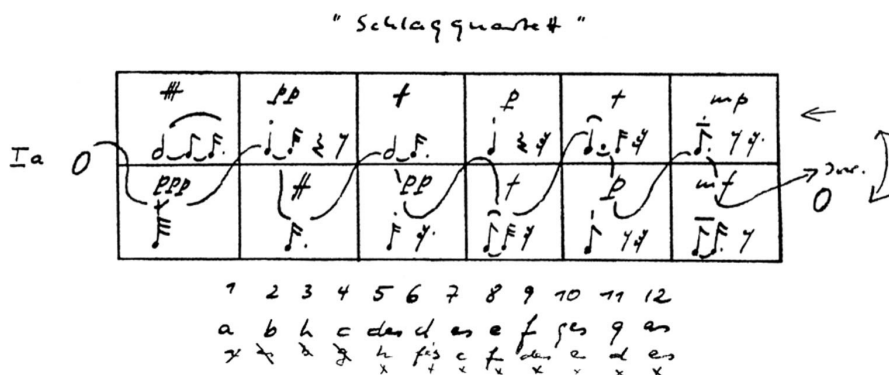 " Schlagquartett "
fff pp f p f mp
Ia
ppp ff pp f p mf
1 2 3 4 5 6 7 8 9 10 11 12
a b h c des d es e f ges g as
h fis c f des e d es